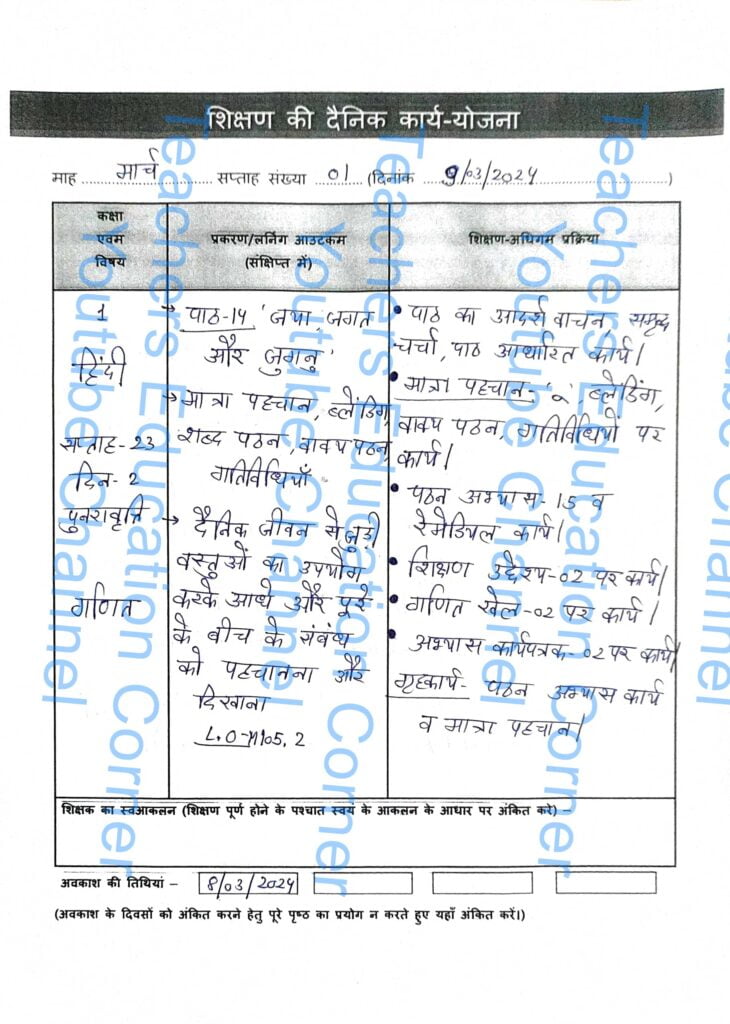 शिक्षण की दैनिक कार्य-योजना
माह मार्च सप्ताह संख्या 01 (दिनांक 9/03/2024)
कक्षा
एवम
विषय
प्रकरण/लर्निंग आउटकम
(संक्षिप्त में)
शिक्षण-अधिगम प्रक्रिया
1
हिंदी
सप्ताह-23
दिन-2
पुनरावृत्ति
गणित
→ पाठ-14 'जया, जगत
और जुगनु'
→ मात्रा पहचान, ब्लेंडिंग,
शब्द पठन, वाक्य पठन,
गतिविधियाँ
→ दैनिक जीवन से जुड़ी
वस्तुओं का उपयोग
करके आधे और पूरे
के बीच के संबंध
को पहचानना और
दिखाना
L.O-M105.2
• पाठ का आदर्श वाचन, समृद्ध
चर्चा, पाठ आधारित कार्य।
• मात्रा पहचान- ब्लेंडिंग,
वाक्य पठन, गतिविधियों पर
कार्य।
• पठन अभ्यास-15 व
रेमेडियल कार्य।
• शिक्षण उद्देश्य-02 पर कार्य।
• गणित खेल-02 पर कार्य।
• अभ्यास कार्यपत्रक-02 पर कार्य।
गृहकार्य- पठन अभ्यास कार्य
व मात्रा पहचान।
शिक्षक का स्वआकलन (शिक्षण पूर्ण होने के पश्चात स्वयं के आकलन के आधार पर अंकित करे) –
अवकाश की तिथियां – 8/03/2024
(अवकाश के दिवसों को अंकित करने हेतु पूरे पृष्ठ का प्रयोग न करते हुए यहाँ अंकित करें।)
Teachers Education Corner
Youtube Channel
Teachers Education Corner
Youtube Channel
Teachers Education Corner
Youtube Channel